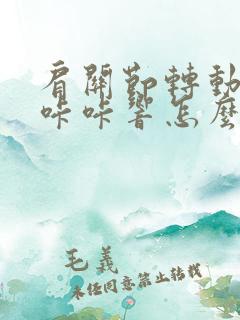 肩關節轉動
咔咔響怎麼
毛義
未經同意禁止轉載